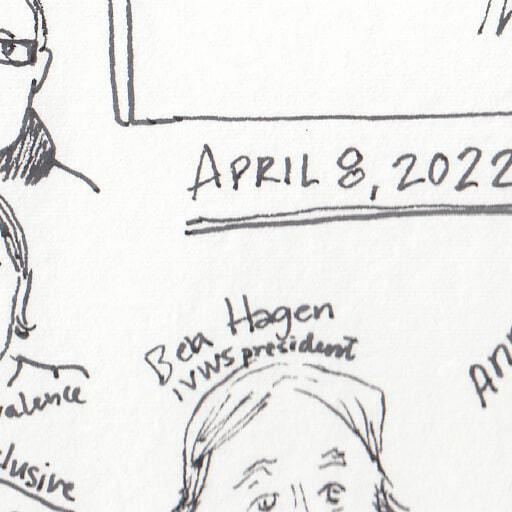 APRIL 8, 2022
Bea Hagen
IVWS president
valence
lusive